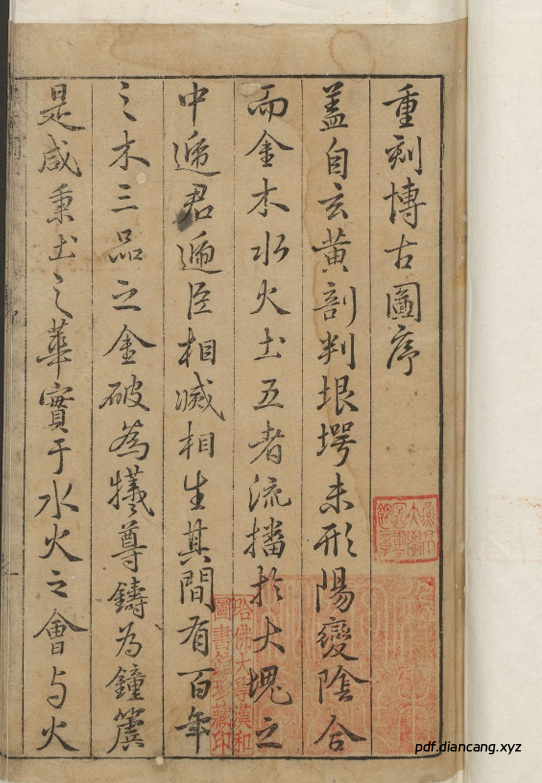 重刻博古圖序
蓋自玄黃剖判垠堮未形陽變陰合
而金木水火土五者流播於大塊之
中遞君遞臣相滅相生其間有百年
之木三品之金破為犧尊鑄為鐘簴
是咸秉土之華實于水火之會与火
哈佛大學漢和
圖書館珍藏印
pdf.diancang.xyz